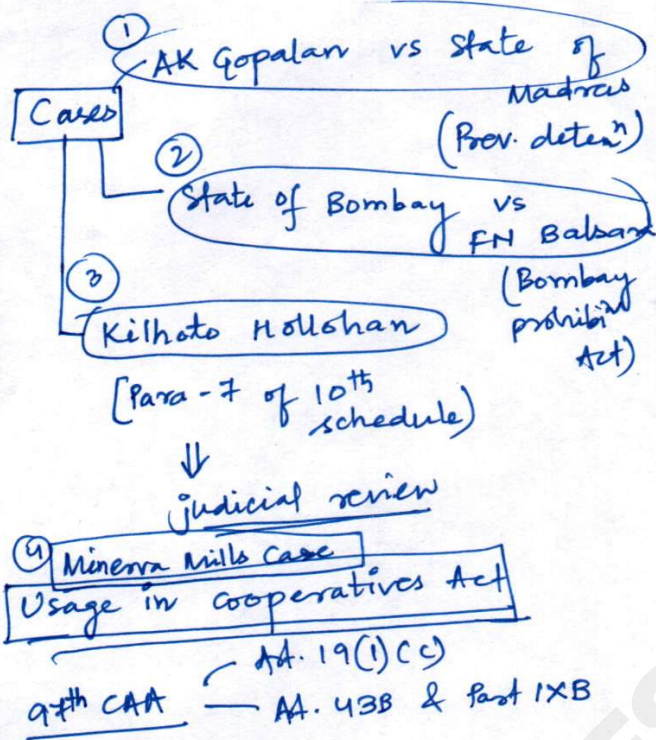 ①
AK Gopalan vs State of
Madras
Cases
(Prev. deten^n)
②
State of Bombay vs
FN Balsara
③
(Bombay
prohibi^n
Act)
Kilhoto Hollohan
[Para-7 of 10th
schedule)
⇓
judicial review
④ Minerva Mills Case
Usage in cooperatives Act
Art. 19(1)(c)
97th CAA — Art. 43B & Part IXB